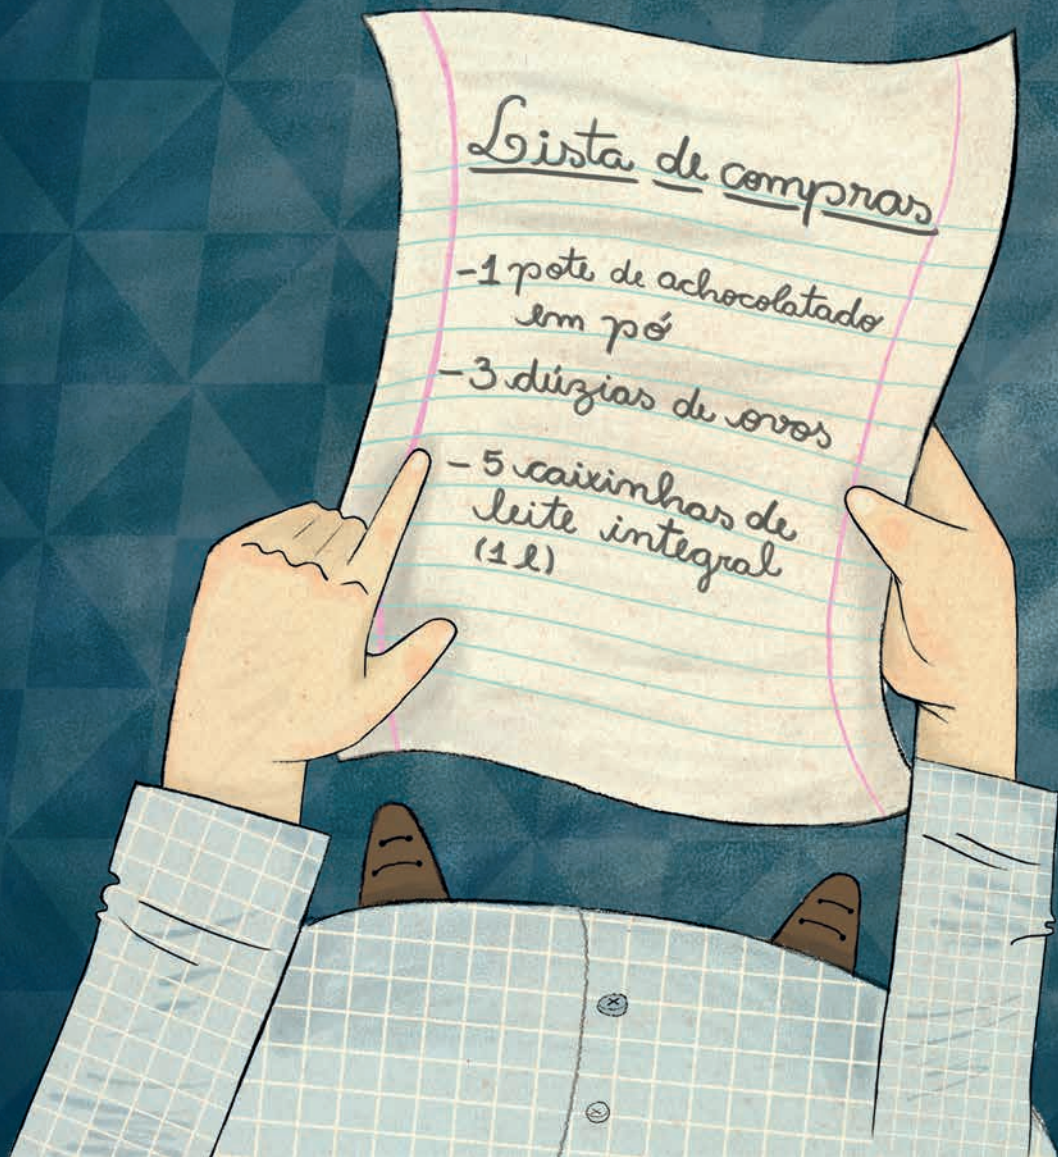 Lista de compras
-1 pote de achocolatado
em pó
-3 dúzias de ovos
-5 caixinhas de
leite integral
(1 l)